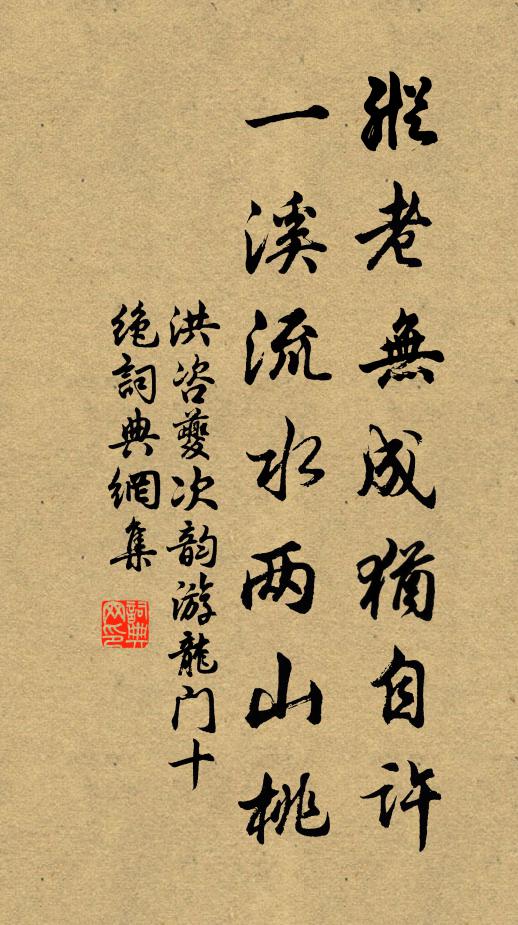 縱老無成猶自許
一溪流水两山桃
洪咨夔次韵游龍门十
绝詞典網集
詞典网印